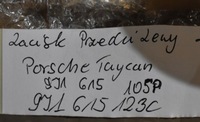 Zacisk Przedni Lewy
Porsche Taycan
9J1 615 105P
9J1 615 123C